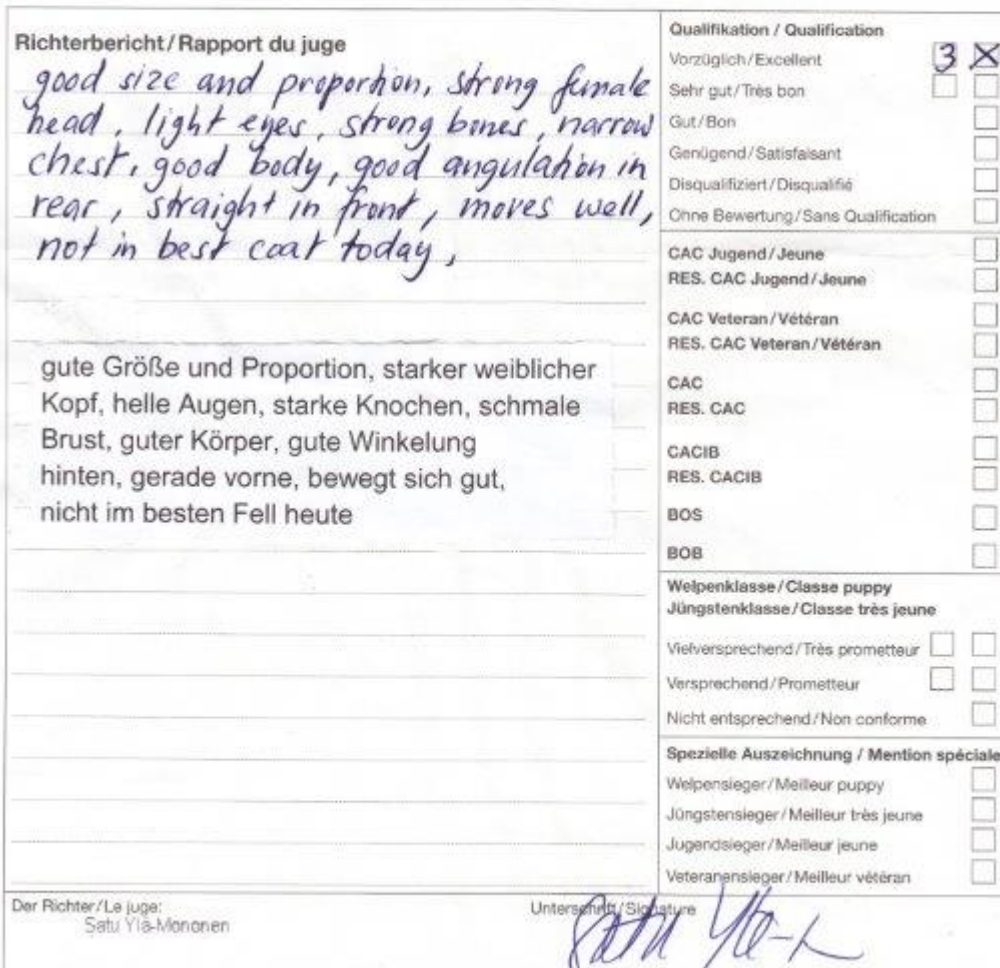 Richterbericht/Rapport du juge
good size and proportion, strong female
head, light eyes, strong bones, narrow
chest, good body, good angulation in
rear, straight in front, moves well,
not in best coat today,
gute Größe und Proportion, starker weiblicher
Kopf, helle Augen, starke Knochen, schmale
Brust, guter Körper, gute Winkelung
hinten, gerade vorne, bewegt sich gut,
nicht im besten Fell heute
Qualifikation / Qualification
Vorzüglich/Excellent 3 X
Sehr gut/Très bon
Gut/Bon
Genügend/Satisfaisant
Disqualifiziert/Disqualifié
Ohne Bewertung/Sans Qualification
CAC Jugend/Jeune
RES. CAC Jugend/Jeune
CAC Veteran/Vétéran
RES. CAC Veteran/Vétéran
CAC
RES. CAC
CACIB
RES. CACIB
BOS
BOB
Welpenklasse/Classe puppy
Jüngstenklasse/Classe très jeune
Vielversprechend/Très prometteur
Versprechend/Prometteur
Nicht entsprechend/Non conforme
Spezielle Auszeichnung / Mention spéciale
Welpensieger/Meilleur puppy
Jüngstensieger/Meilleur très jeune
Jugendsieger/Meilleur jeune
Veteranensieger/Meilleur vétéran
Der Richter/Le juge:
Satu Ylä-Mononen
Unterschrift/Signature
Satu